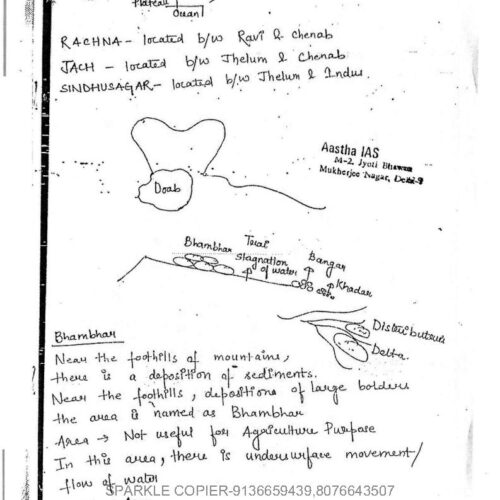 Plateau
RACHNA - located b/w Ravi & Chenab
JACH - located b/w Jhelum & Chenab
SINDHUSAGAR - located b/w Jhelum & Indus.
Aastha IAS
M-2, Jyoti Bhawan
Mukherjee Nagar, Delhi-9
Doab
Bhambhar
Terai
stagnation
of water
Bangar
Khadar
Distributaries
Delta.
Bhambhar
Near the foothills of mountains,
there is a deposition of sediments.
Near the foothills, depositions of large bolders
the area is named as Bhambhar
Area → Not useful for Agriculture Purpose
In this area, there is undersurface movement/
flow of water
SPARKLE COPIER-9136659439,8076643507